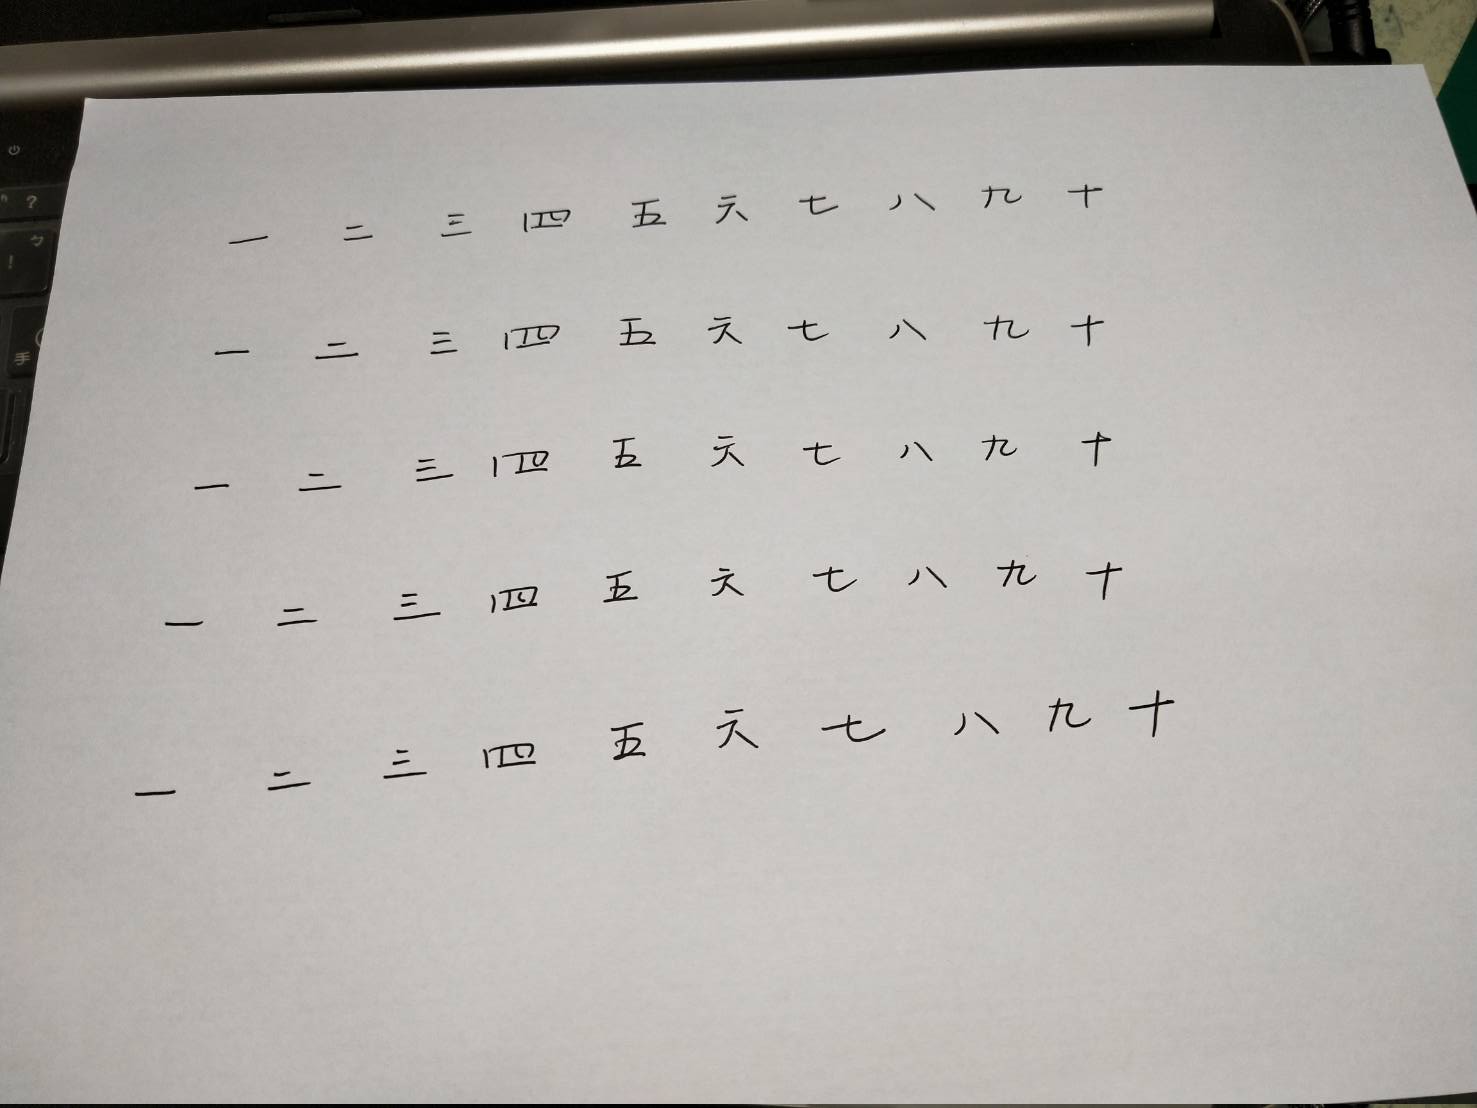 一 二 三 四 五 六 七 八 九 十
一 二 三 四 五 六 七 八 九 十
一 二 三 四 五 六 七 八 九 十
一 二 三 四 五 六 七 八 九 十
一 二 三 四 五 六 七 八 九 十
?
ㄅ
!
手